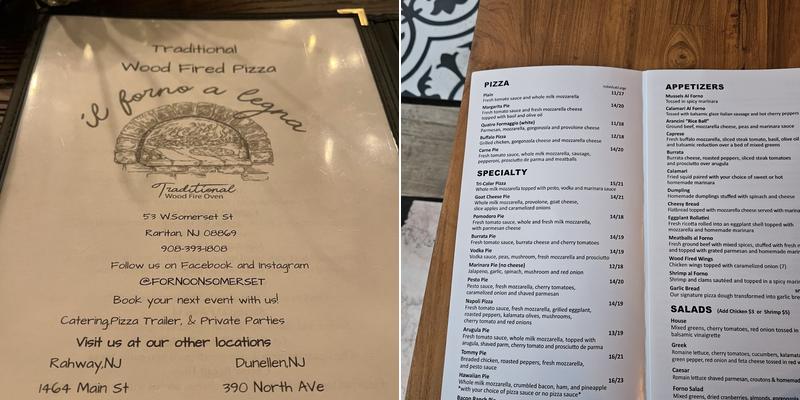 Traditional
Wood Fired Pizza
il forno a legna
Traditional
Wood Fire Oven
53 W.Somerset St
Raritan, NJ 08869
908-393-1808
Follow us on Facebook and Instagram
@FORNOONSOMERSET
Book your next event with us!
Catering,Pizza Trailer, & Private Parties
Visit us at our other locations
Rahway,NJ Dunellen,NJ
1464 Main St 390 North AVe
PIZZA
Plain 11/17
Fresh tomato sauce and whole milk mozzarella
Margarita Pie 14/20
Fresh tomato sauce and fresh mozzarella cheese
topped with basil and olive oil
Quatro Formaggio (white) 11/18
Parmesan, mozzarella, gorgonzola and provolone cheese
Buffalo Pizza 12/18
Grilled chicken, gorgonzola cheese and mozzarella cheese
Carne Pie 14/20
Fresh tomato sauce, whole milk mozzarella, sausage,
pepperoni, prosciutto de parma and meatballs
SPECIALTY
Tri-Color Pizza 15/21
Whole milk mozzarella topped with pesto, vodka and marinara sauce
Goat Cheese Pie 14/21
Whole milk mozzarella, provolone, goat cheese,
slice apples and caramelized onions
Pomodoro Pie 14/18
Fresh tomato sauce, white and fresh mozzarella,
with parmesan cheese
Burrata Pie 14/19
Fresh tomato sauce, burrata cheese and cherry tomatoes
Vodka Pie 14/19
Vodka sauce, peas, mushroom, fresh mozzarella and prosciutto
Marinara Pie (no cheese) 12/18
Jalapeno, garlic, spinach, mushroom and red onion
Pesto Pie 14/20
Pesto sauce, fresh mozzarella, cherry tomatoes,
caramelized onion and shaved parmesan
Napoli Pizza 14/19
Fresh tomato sauce, fresh mozzarella, grilled eggplant,
roasted peppers, kalamata olives, mushrooms,
cherry tomato and red onions
Arugula Pie 13/19
Fresh tomato sauce, fresh mozzarella topped with
arugula, shaved parm, cherry tomato and prosciutto de parma
Tommy Pie 16/21
Breaded chicken, roasted peppers, fresh mozzarella,
and pesto sauce
Hawaiian Pie 16/23
Whole milk mozzarella, crumbled bacon, ham, and pineapple
*with your choice of pizza sauce or no pizza sauce*
APPETIZERS
Mussels Al Forno
Tossed in spicy marinara
Calamari Al Forno
Tossed with balsamic glaze Italian sausage and hot cherry peppers
Arancini "Rice Ball"
Ground beef, mozzarella cheese, peas and marinara sauce
Caprese
Fresh buffalo mozzarella, sliced steak tomato, basil, olive oil
and balsamic reduction over a bed of mixed greens
Burrata
Burrata cheese, roasted peppers, sliced steak tomatoes
and prosciutto over arugula
Calamari
Fried squid paired with your choice of sweet or hot
homemade marinara
Dumpling
Homemade dumplings stuffed with spinach and cheese
Cheesy Bread
Flatbread topped with mozzarella cheese served with
Eggplant Rollatini
Fresh ricotta rolled into an eggplant shell topped with
mozzarella and homemade marinara
Meatballs al Forno
Fresh ground beef with mixed spices, stuffed with fresh
and topped with grated parmesan and homemade
Wood Fired Wings
Chicken wings topped with caramelized onion (7)
Shrimp al Forno
Shrimp and clams sautéed and topped in a spicy
Garlic Bread
Our signature pizza dough transformed into garlic
SALADS (Add Chicken $3 or Shrimp $5)
House
Mixed greens, cherry tomatoes, red onion tossed in
balsamic vinaigrette
Greek
Romaine lettuce, cherry tomatoes, cucumbers,
green pepper, red onion and feta cheese tossed in
Caesar
Romaine lettuce shaved parmesan, croutons &
Forno Salad